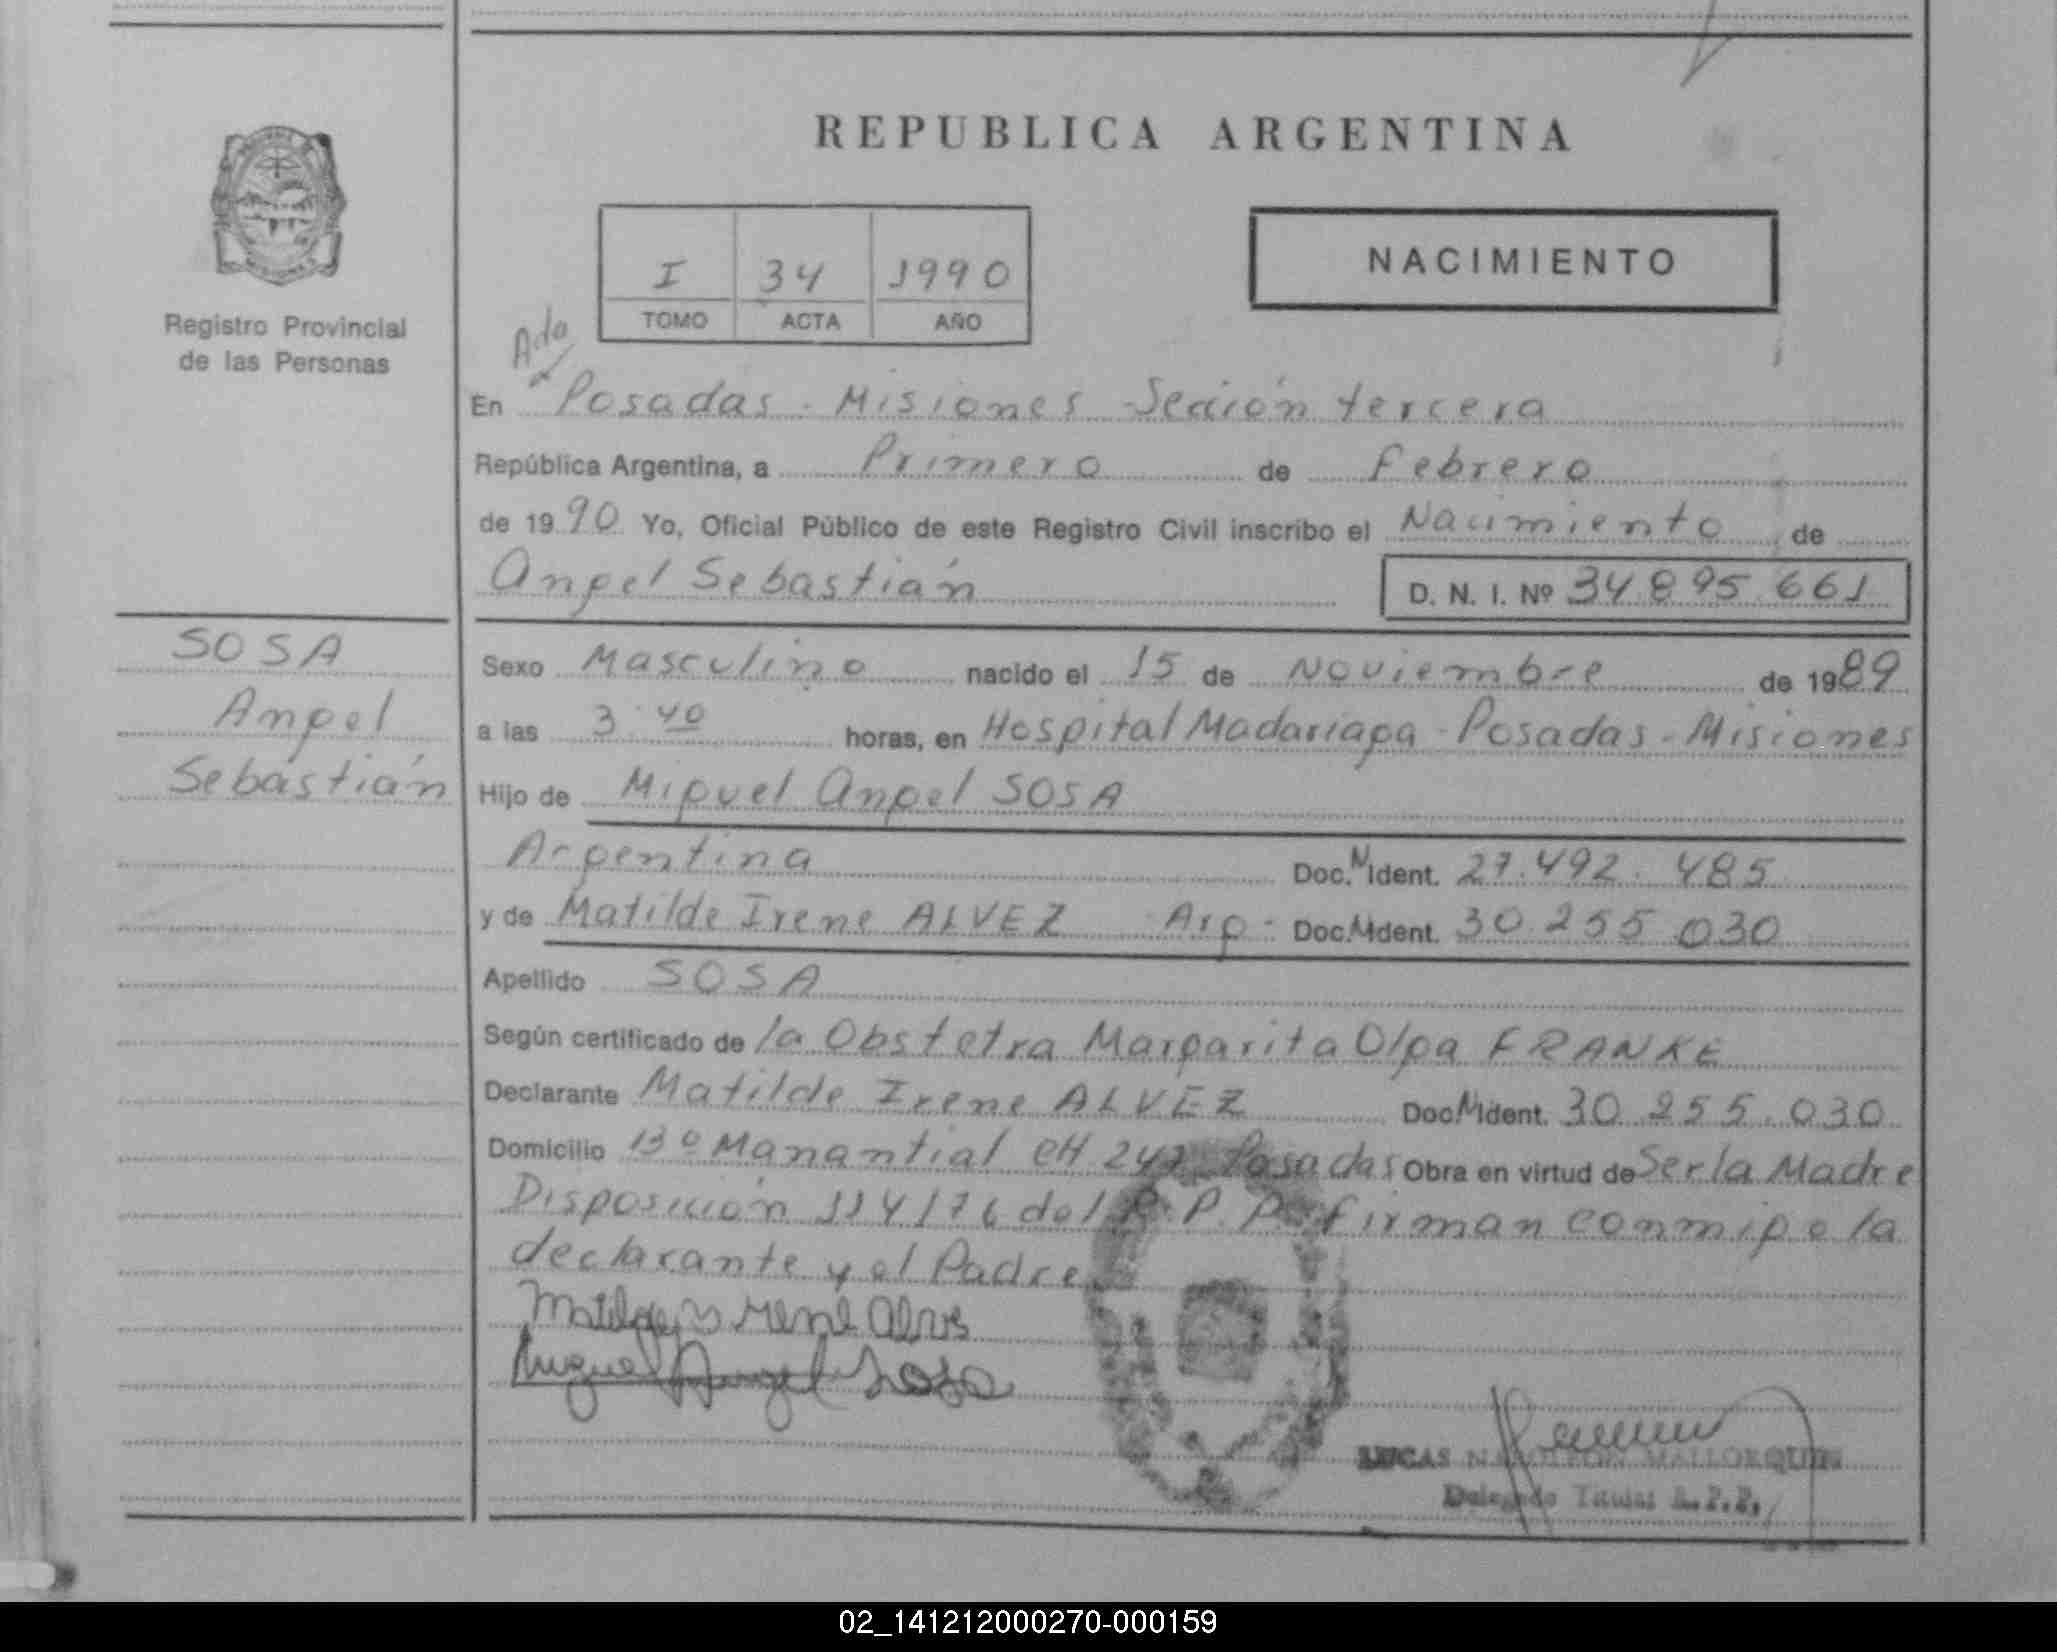 REPUBLICA ARGENTINA
I 34 1990
TOMO ACTA AÑO
NACIMIENTO
Registro Provincial
de las Personas
Ado
En Posadas - Misiones - Sección tercera
República Argentina, a Primero de Febrero
de 1990 Yo, Oficial Público de este Registro Civil inscribo el Nacimiento de
Angel Sebastián D. N. I. Nº 34.895.661
SOSA
Angel
Sebastián
Sexo Masculino nacido el 15 de Noviembre de 1989
a las 3.40 horas, en Hospital Madariaga - Posadas - Misiones
Hijo de Miguel Angel SOSA
Argentina Doc. N Ident. 27.492.485
y de Matilde Irene ALVEZ Arg - Doc. N Ident. 30.255.030
Apellido SOSA
Según certificado de la Obstetra Margarita Olga FRANKE
Declarante Matilde Irene ALVEZ Doc. N Ident. 30.255.030
Domicilio Bº Manantial CH 242 Posadas Obra en virtud de Ser la Madre
Disposición 114/76 del R.P.P. firman conmigo la
declarante y el Padre
Miguel Angel Sosa
LUCAS NAPOLEON MALLORQUIN
Delegado Titular R.P.P.
02_141212000270-000159